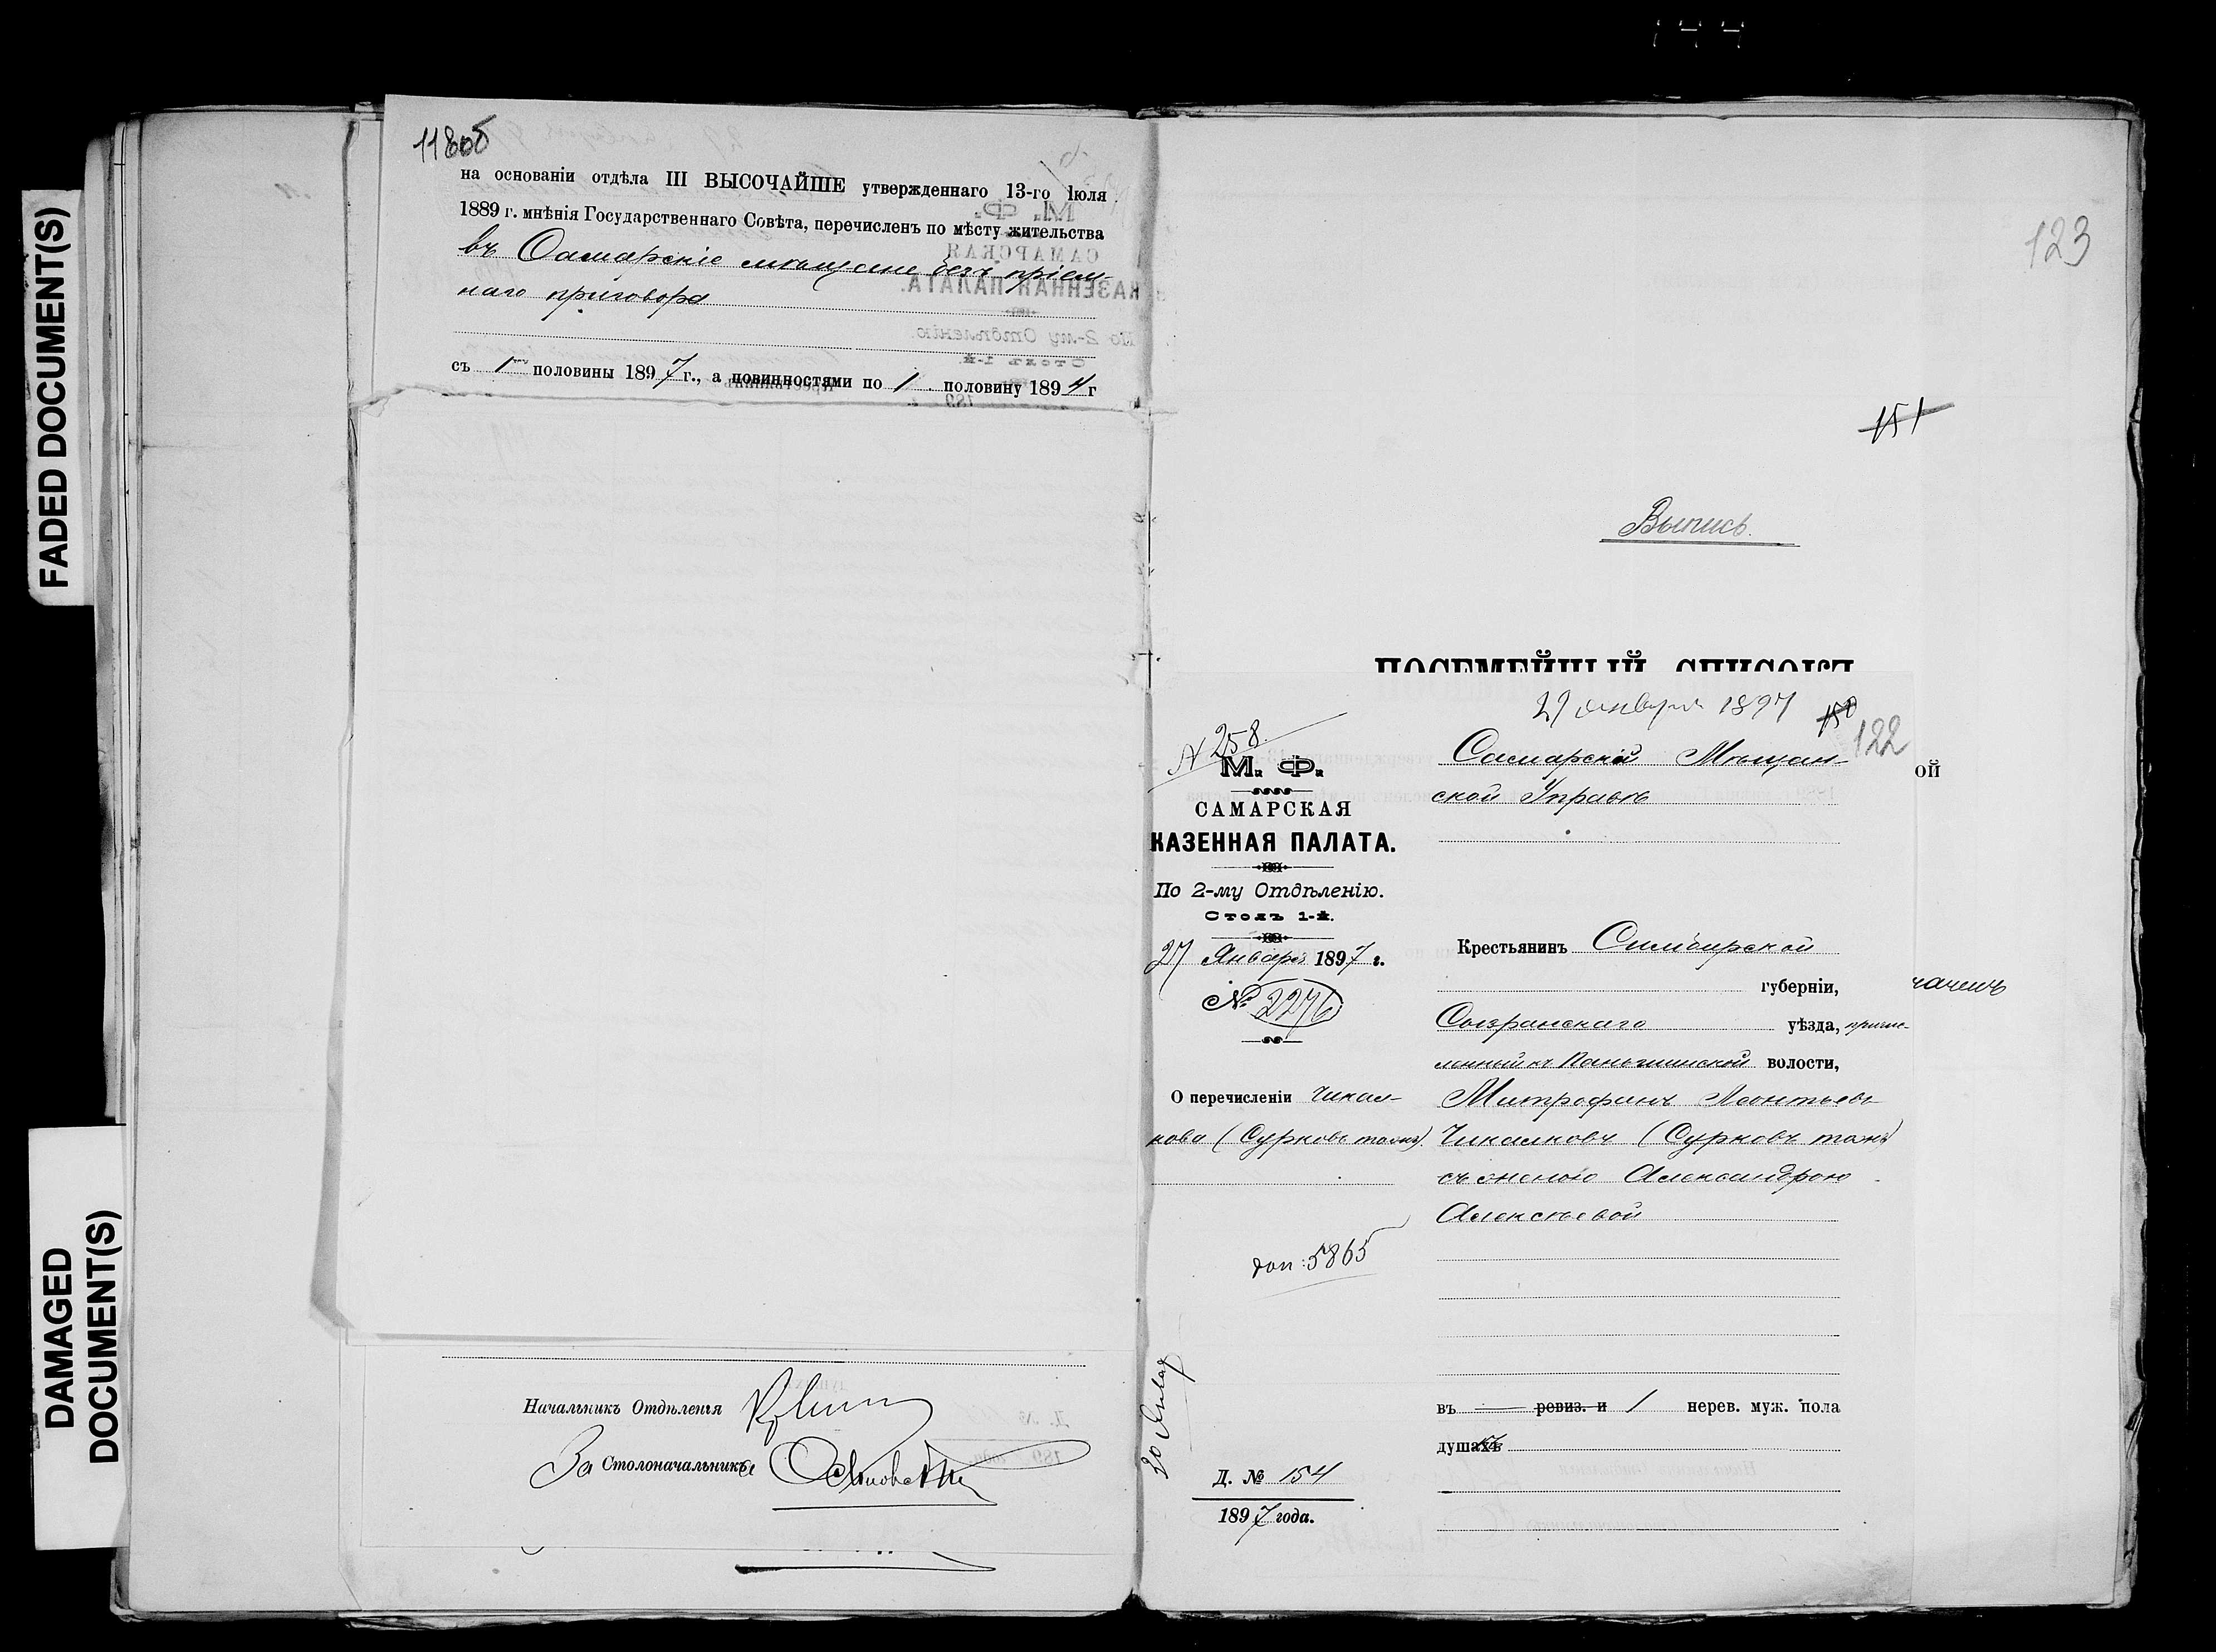 144
FADED DOCUMENT(S)
DAMAGED
DOCUMENT(S)
11805
на основаніи отдѣла III ВЫСОЧАЙШЕ утвержденнаго 13-го Іюля
1889 г. мнѣнія Государственнаго Совѣта, перечисленъ по мѣсту жительства
въ Самарскіе мѣщане безъ пріем-
наго приговора
съ 1 половины 1897 г., а повинностями по 1 половину 1894 г
Начальникъ Отдѣленія
За Столоначальника
123
151
Выпись.
ПОСЕМЕЙНЫЙ СПИСОКЪ
27 января 1897
150
122
№ 258
М. Ф.
САМАРСКАЯ
КАЗЕННАЯ ПАЛАТА.
По 2-му Отдѣленію.
Столъ 1-й.
27 Января 1897 г.
№ 2276
О перечисленіи Чикал-
кова (Сурковъ тожъ).
доп: 5865
Д. № 154
1897 года.
Самарской Мѣщан-
ской Управѣ
ой
Крестьянинъ Симбирской
губерніи,
Сызранскаго уѣзда, причис-
ленный къ Паньшинской волости,
Митрофанъ Леонтьевъ
Чикалковъ (Сурковъ тожъ)
съ женою Александрою
Алексѣевой
въ — ревиз. и 1 нерев. муж. пола
душахъ